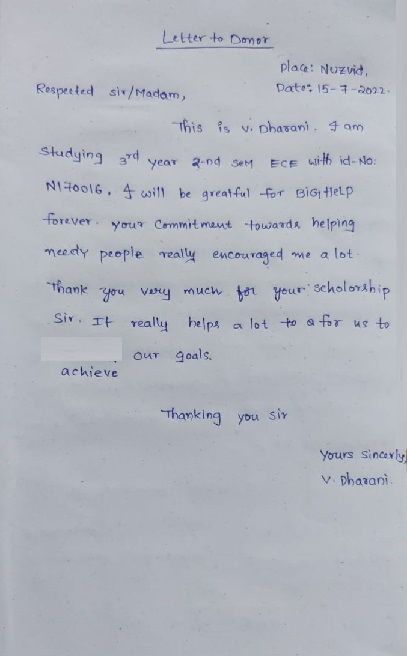 Letter to Donor
Place: Nuzvid,
Respected sir/Madam, Date: 15-7-2022.
This is V. Dharani. I am
Studying 3rd year 2-nd sem ECE with id-No:
N170016, I will be greatful for BiGHelp
forever. your Commitment towards helping
needy people really encouraged me a lot.
Thank you very much for your scholorship
Sir. It really helps a lot to a for us to
our goals.
achieve
Thanking you sir
Yours Sincerly,
V. Dharani.